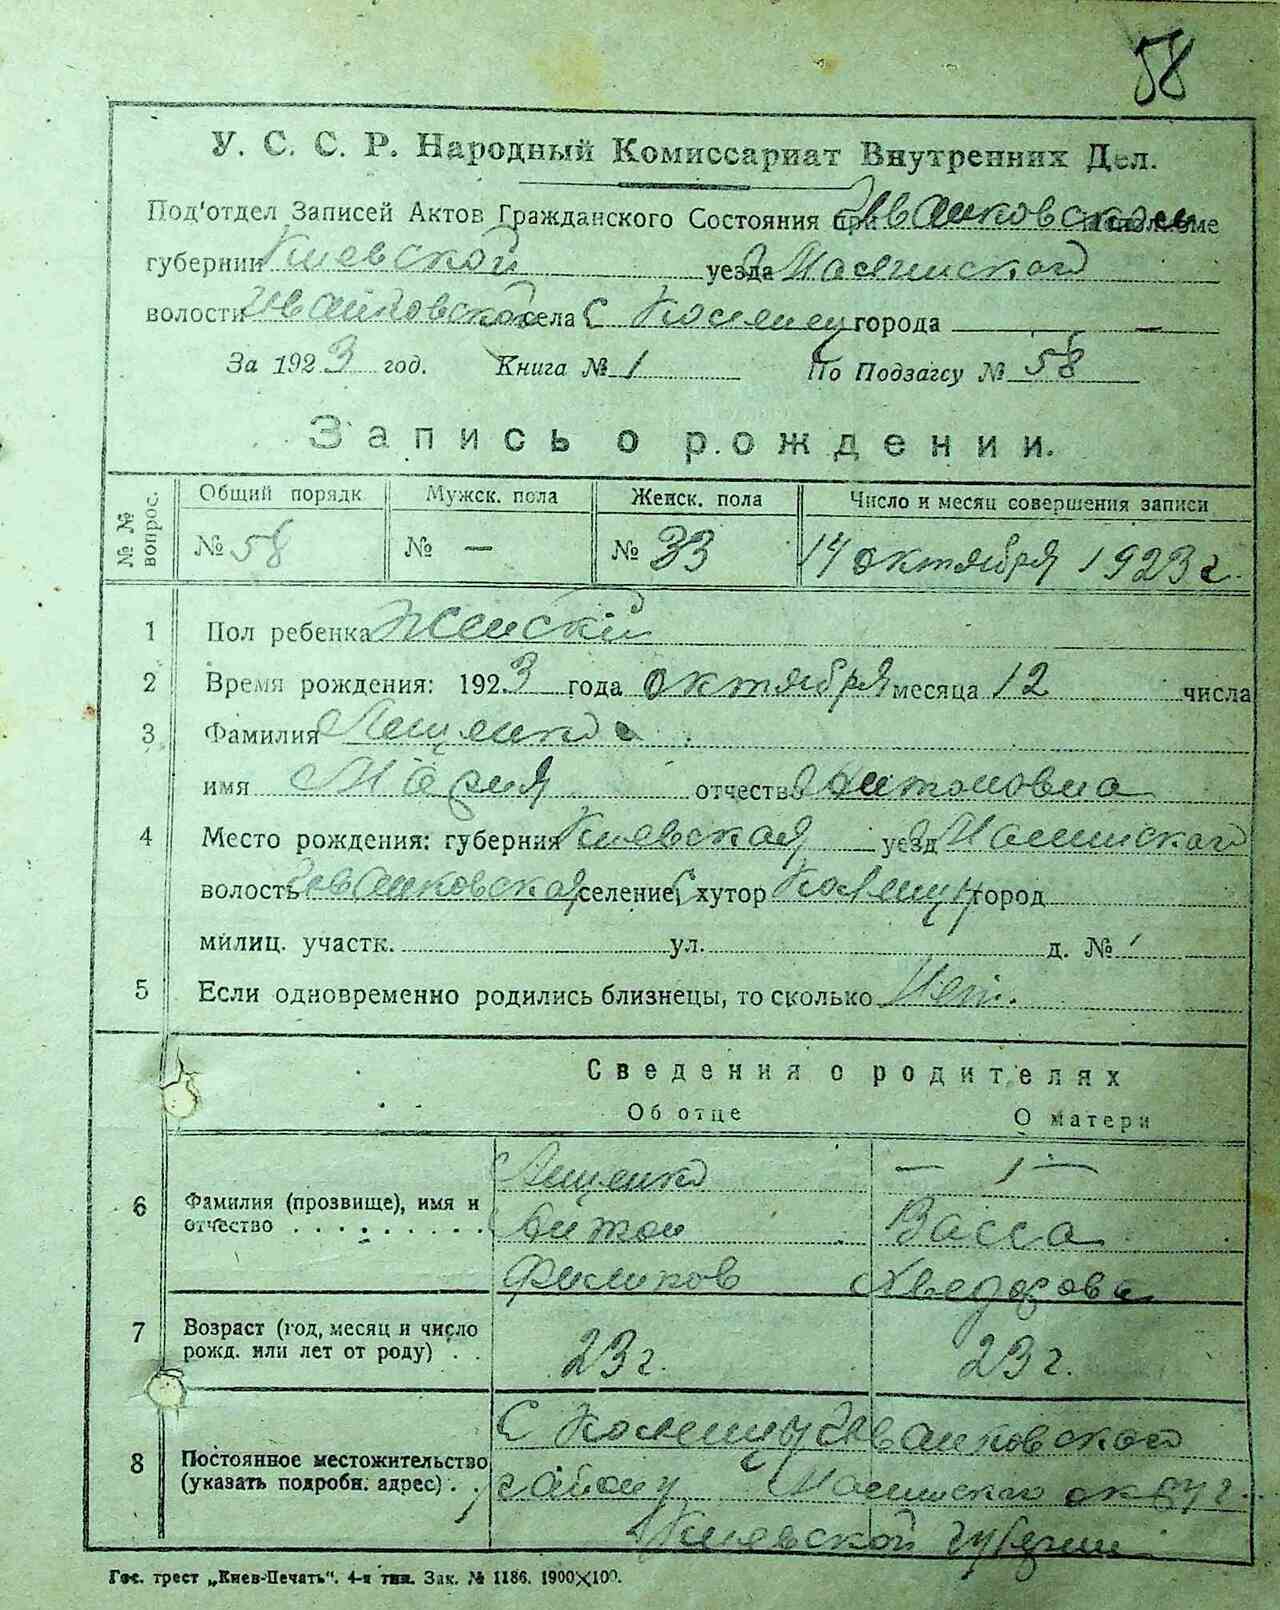 58
У. С. С. Р. Народный Комиссариат Внутренних Дел.
Под'отдел Записей Актов Гражданского Состояния при Иванковском
губернии Киевской уезда Малинского
волости Иванковской села С города —
За 1923 год. Книга № 1 По Подзагсу № 58
Запись о рождении.
№ № вопрос. Общий порядк. Мужск. пола Женск. пола Число и месяц совершения записи
№ 58 № — № 33 14 октября 1923 г.
1 Пол ребенка Женскій
2 Время рождения: 1923 года октября месяца 12 числа
3 Фамилия Лещенко
имя Мария отчество Антоновна
4 Место рождения: губерния Киевская уезд Малинского
волость Иванковская селение С хутор город
милиц. участк. ул. д. №
5 Если одновременно родились близнецы, то сколько Нет.
Сведения о родителях
Об отце О матери
6 Фамилия (прозвище), имя и отчество Лещенко — 1 —
Антон Васса
Филипов Хведорова
7 Возраст (год, месяц и число рожд. или лет от роду) 23 г. 23 г.
8 Постоянное местожительство (указать подробн. адрес) С Иванковского
району Малинского округ
Киевской губернии
Гос. трест „Киев-Печать“. 4-я тип. Зак. № 1186. 1900×100.